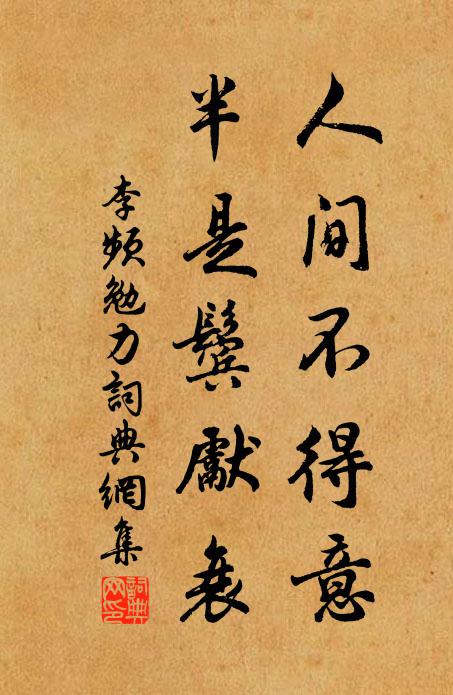 人間不得意
半是鬢獻衰
李頻勉力詞典網集
詞典网印